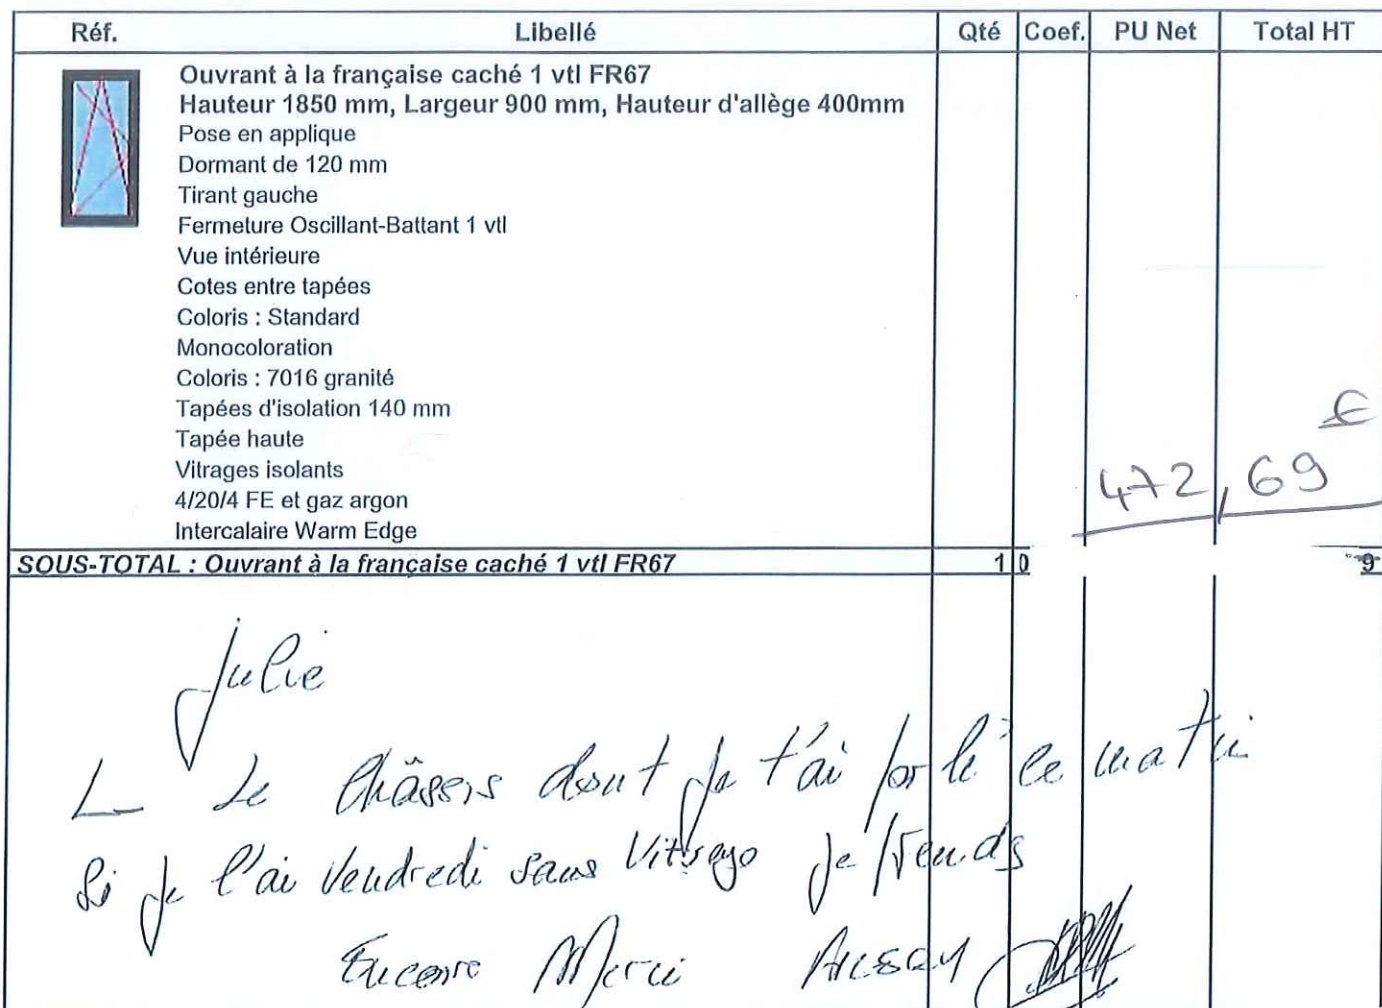 Réf. Libellé Qté Coef. PU Net Total HT
Ouvrant à la française caché 1 vtl FR67
Hauteur 1850 mm, Largeur 900 mm, Hauteur d'allège 400mm
Pose en applique
Dormant de 120 mm
Tirant gauche
Fermeture Oscillant-Battant 1 vtl
Vue intérieure
Cotes entre tapées
Coloris : Standard
Monocoloration
Coloris : 7016 granité
Tapées d'isolation 140 mm
Tapée haute
Vitrages isolants
4/20/4 FE et gaz argon
Intercalaire Warm Edge
472,69 €
SOUS-TOTAL : Ouvrant à la française caché 1 vtl FR67 1 0 9
Julie
Le Châssis dont je t'ai parlé ce matin
Si je l'ai Vendredi sans Vitrage je prends
Encore Merci